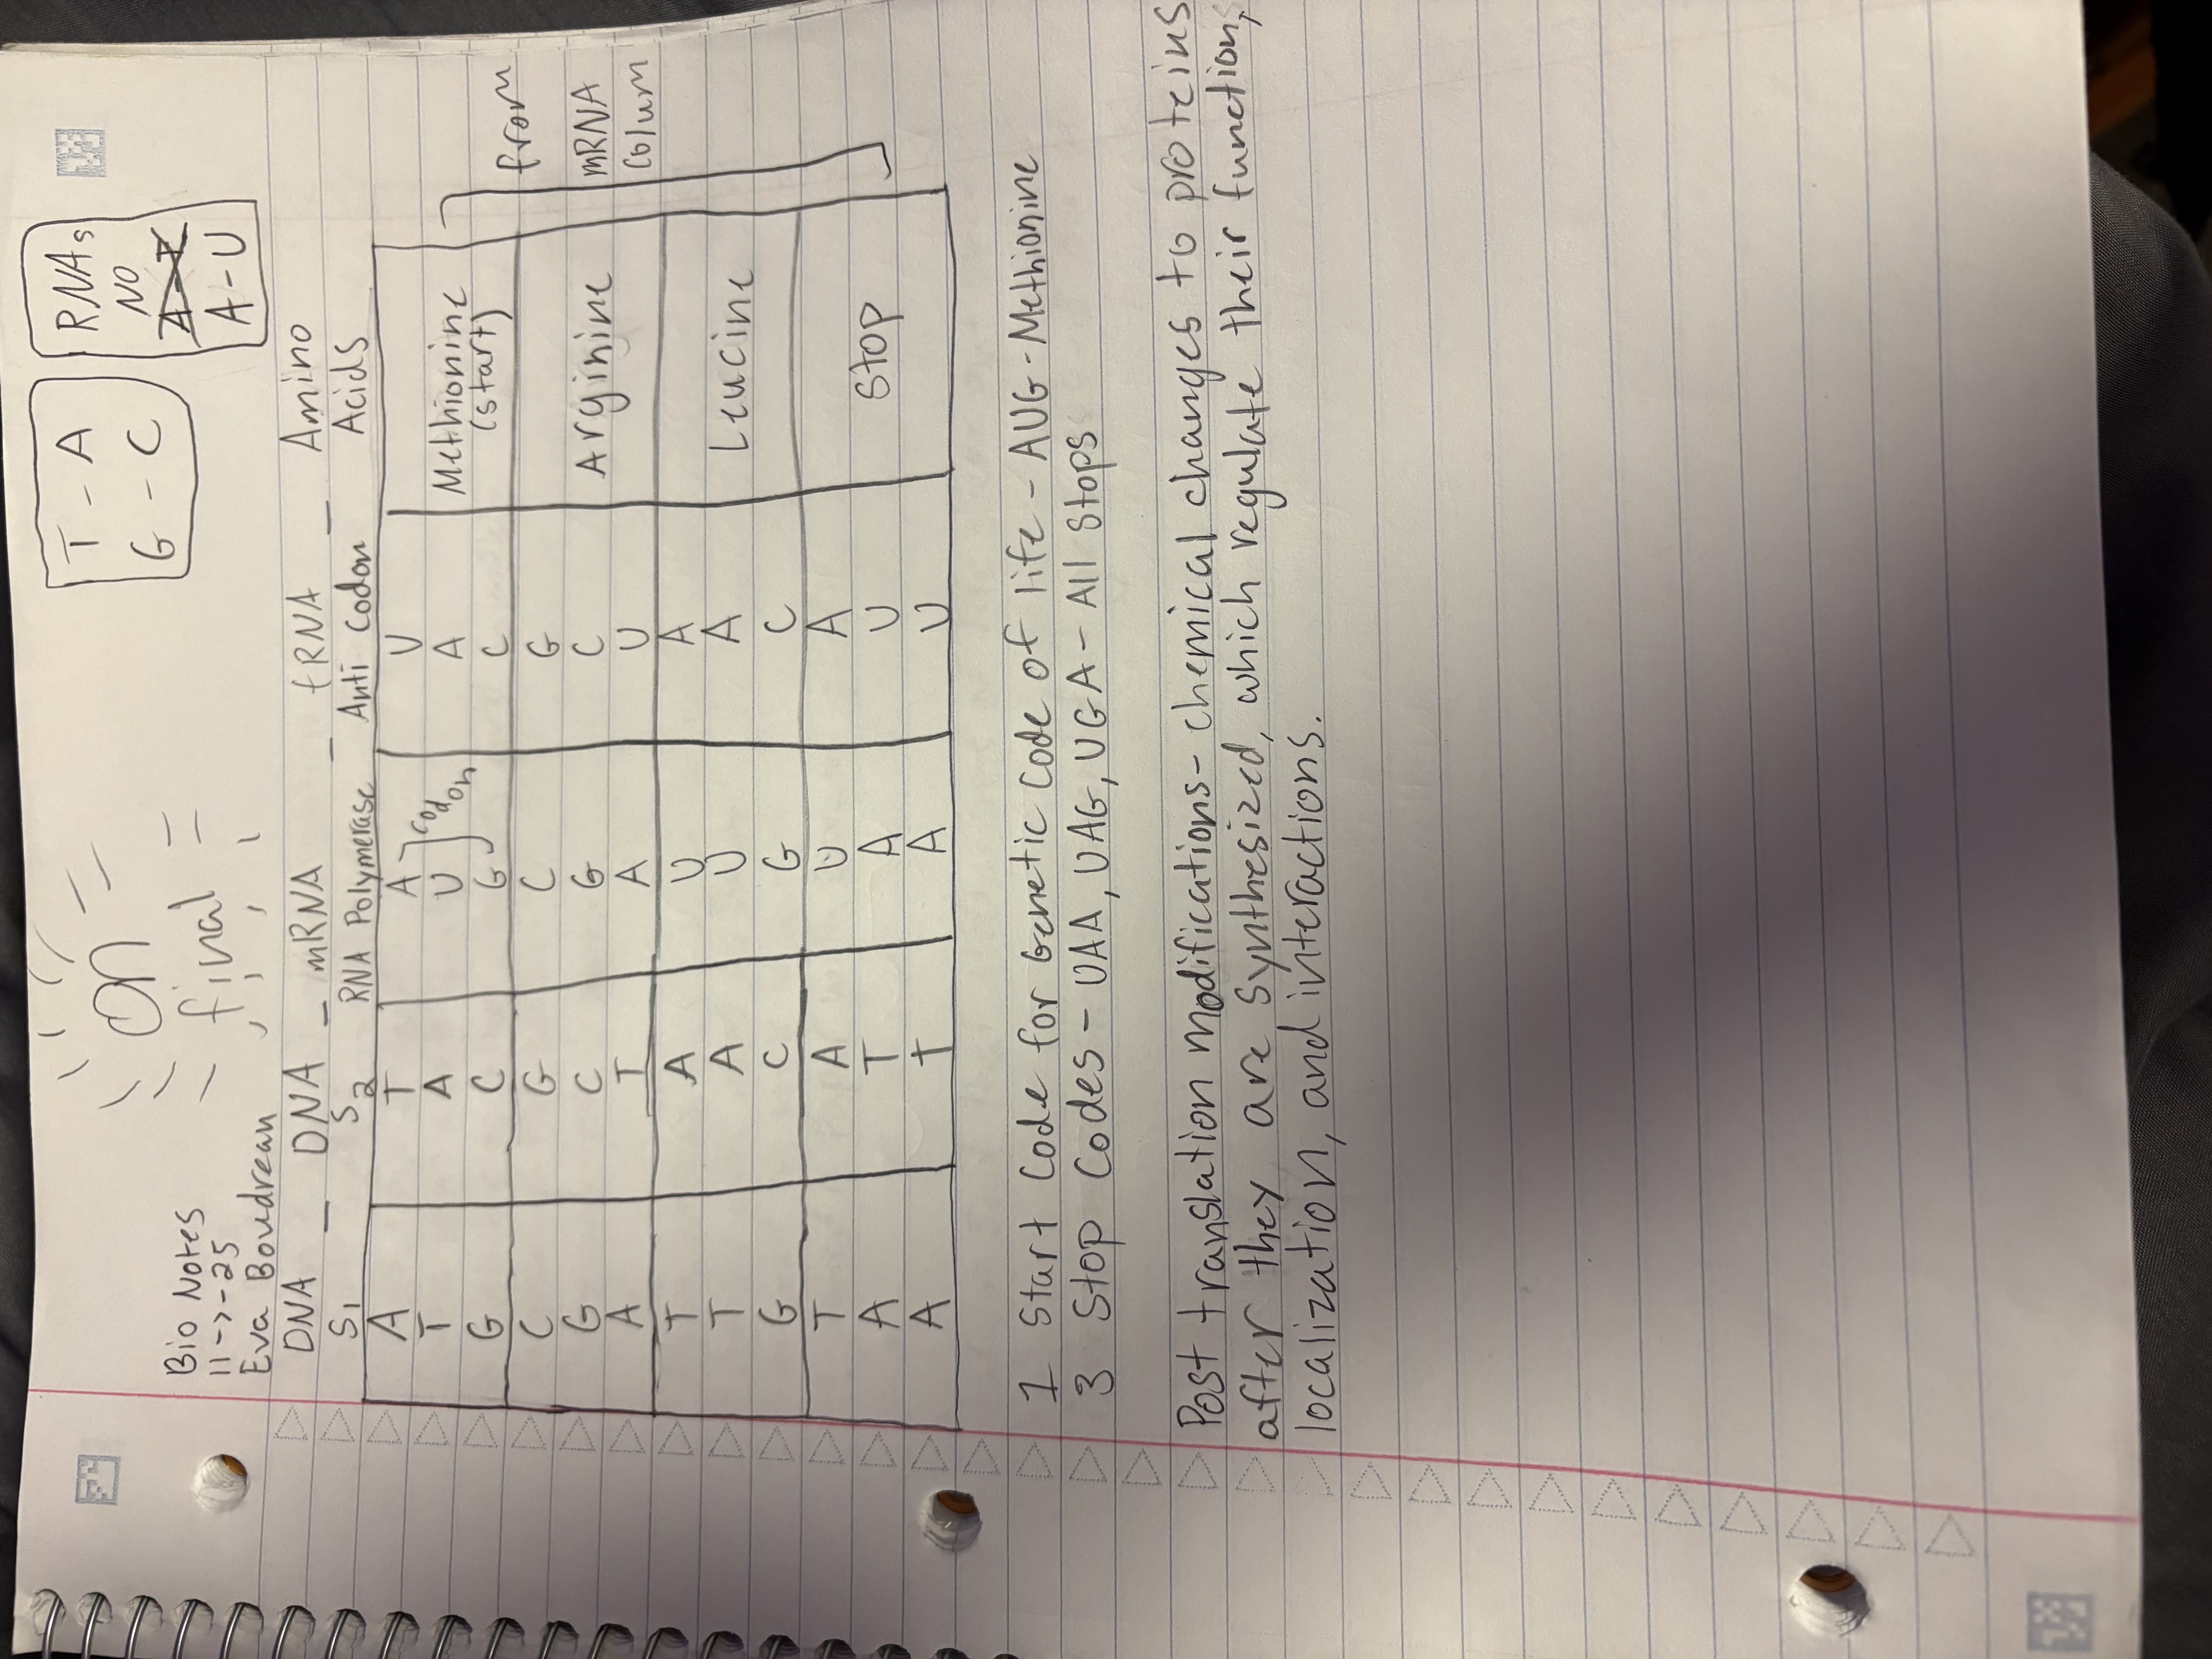 On
final
T - A
G - C
RNAs
NO
A-T
A-U
Bio Notes
11->-25
Eva Boudrean
DNA - DNA - mRNA - tRNA - Amino
S1 S2 RNA Polymerase Anti Codon Acids
A T A U
T A U A Methionine
G C G C (start)
codon
C G C G
G C G C Arginine
A T A U
T A U A
T A U A Leucine
G C G C
T A U A
A T A U Stop
A T A U
from
mRNA
Colum
1 Start Code for Genetic Code of life - AUG - Methionine
3 Stop Codes - UAA, UAG, UGA - All Stops
Post translation modifications - chemical changes to proteins
after they are synthesized, which regulate their function,
localization, and interactions.